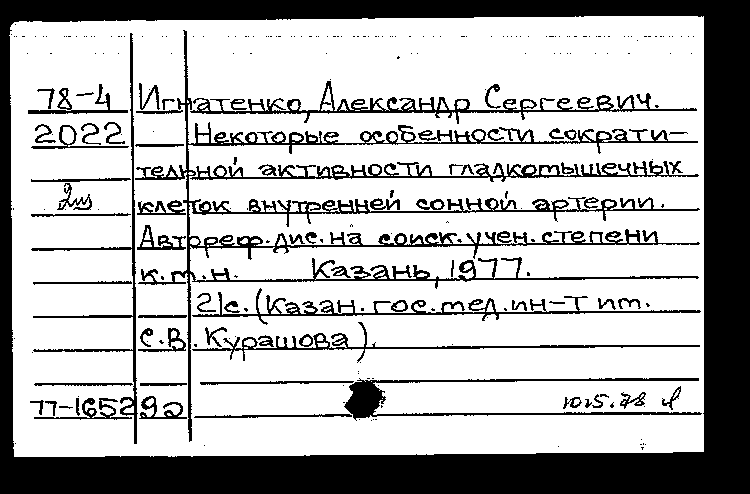 78-4 Игнатенко, Александр Сергеевич.
2022 Некоторые особенности сократи-
тельной активности гладкомышечных
2из клеток внутренней сонной артерии.
Автореф. дис. на соиск. учен. степени
к.м.н. Казань, 1977.
21с. (Казан. гос. мед. ин-т им.
С.В. Курашова).
77-16529э